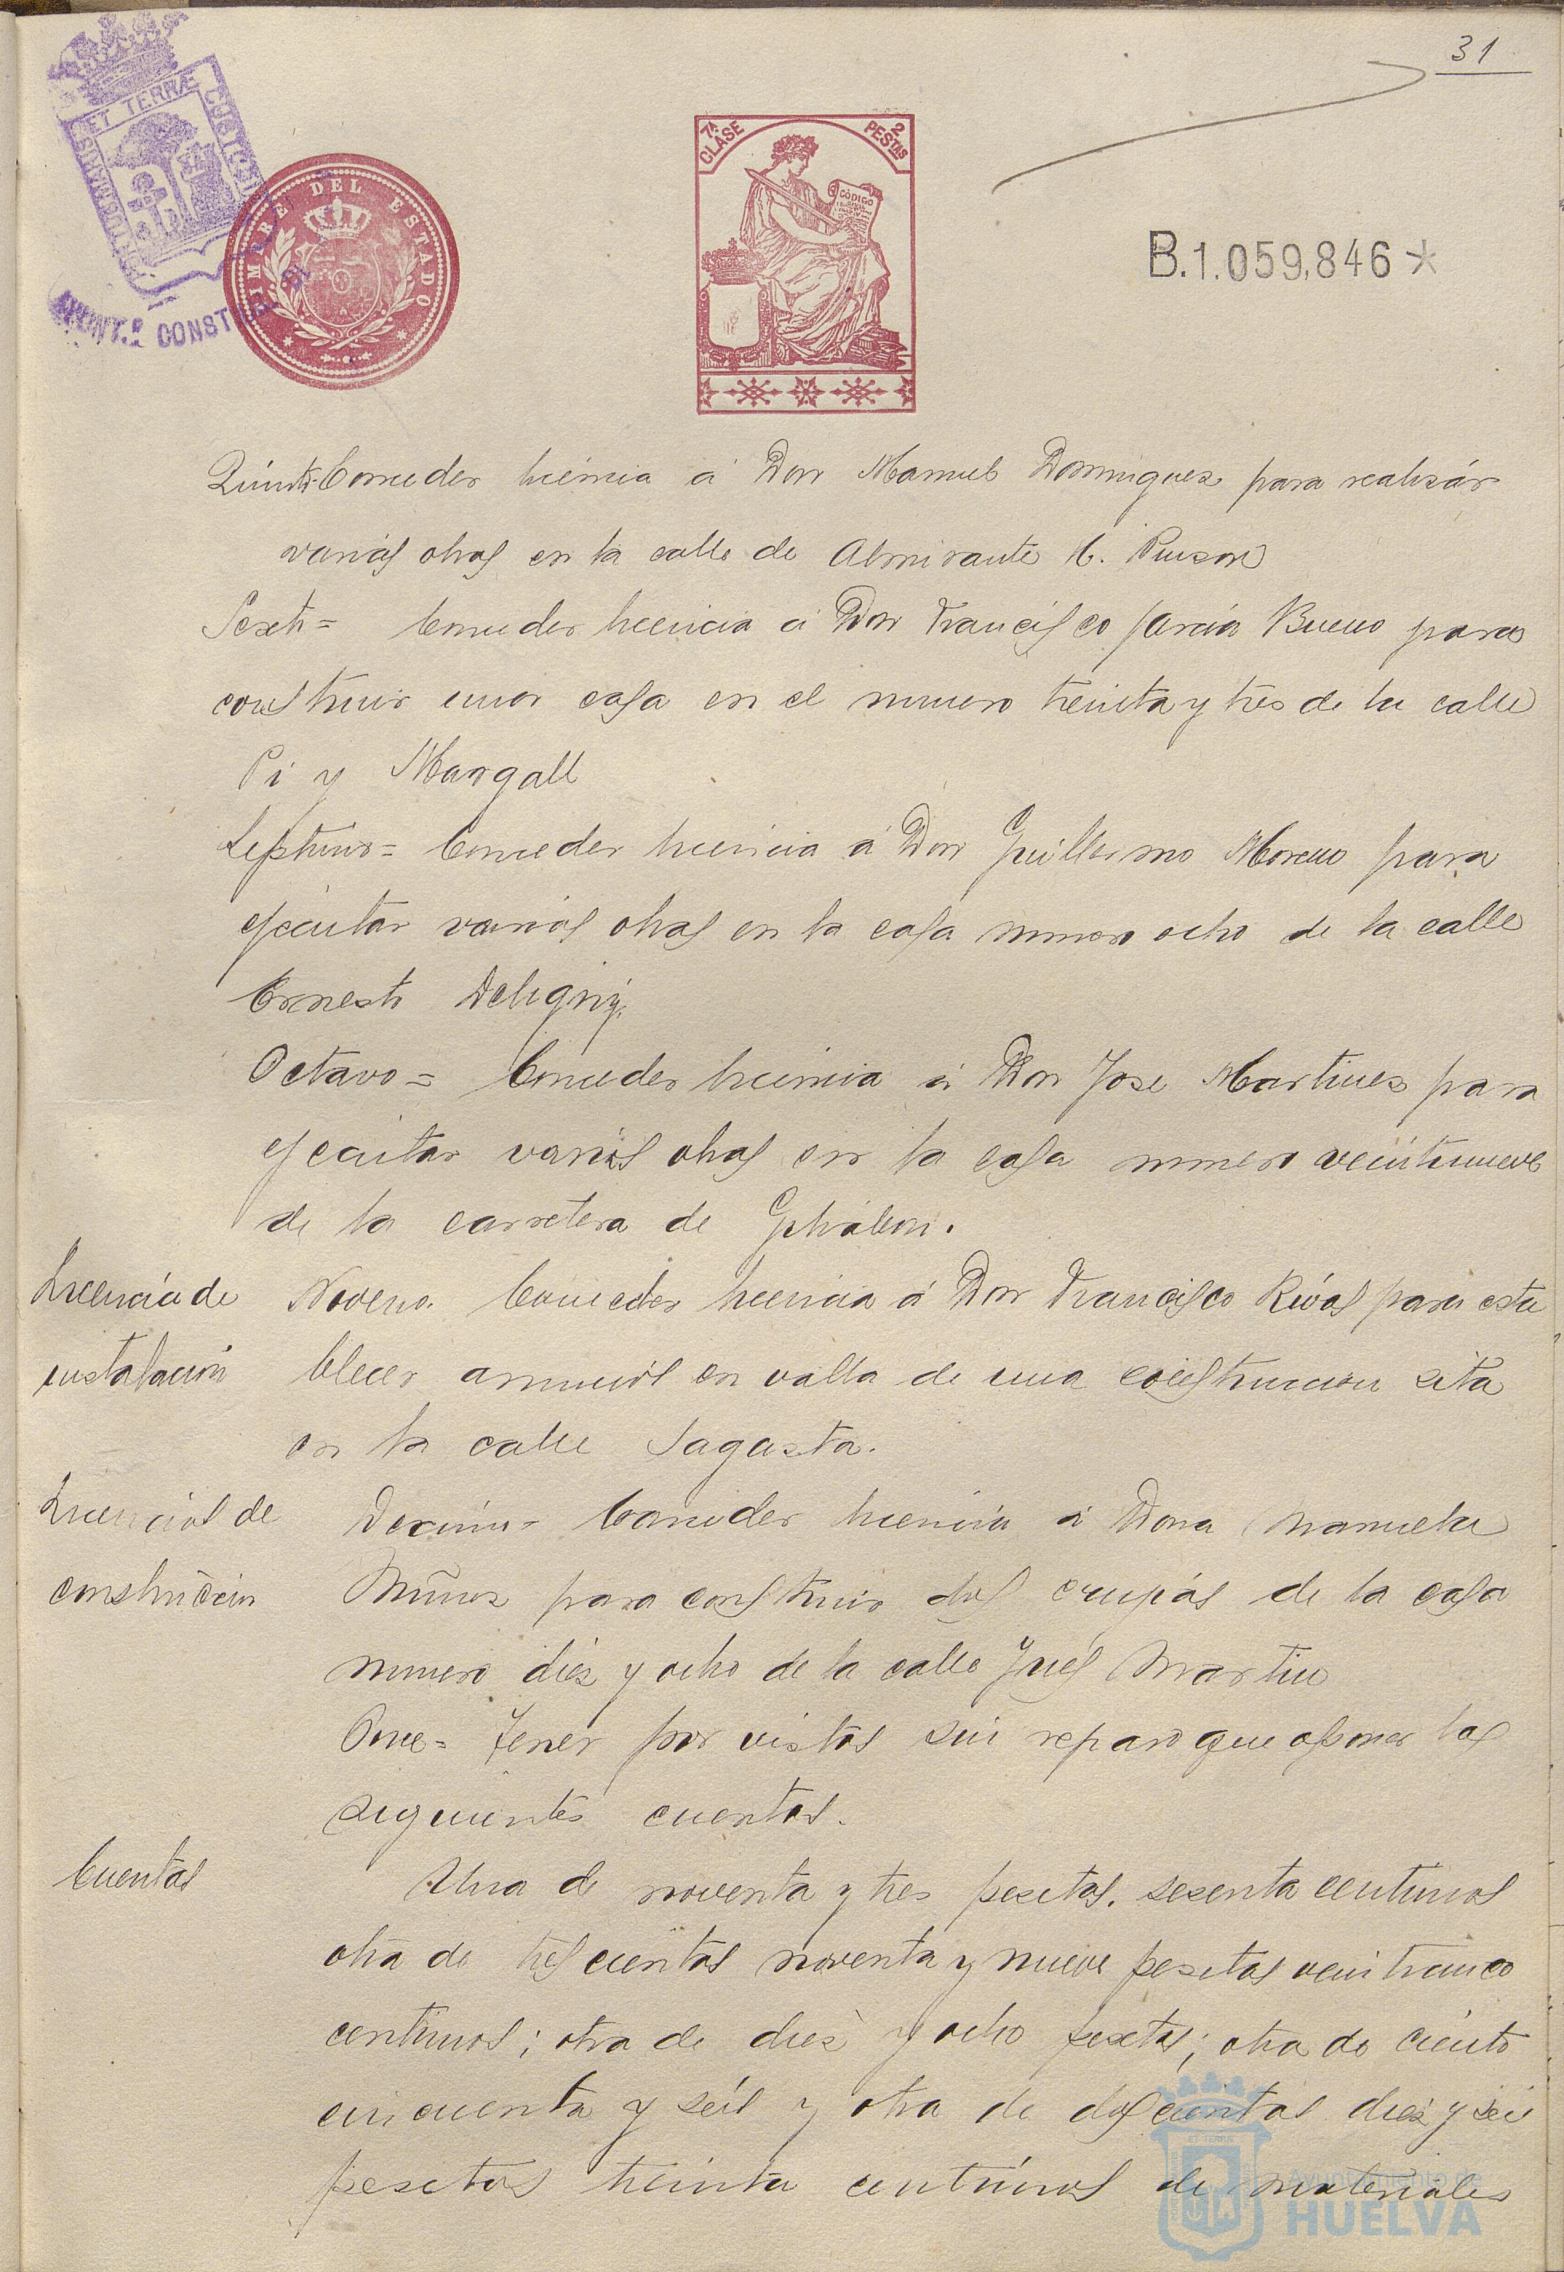 31
PORTUS MARIS ET TERRÆ CUSTODIA
AYUNT.º CONST
TIMBRE DEL ESTADO
7ª CLASE
2 PESTAS
CÓDIGO
B.1.059,846*
Quinto. Conceder licencia á Don Manuel Dominguez para realizár
varias obras en la calle de Almirante H. Pinzon
Sexto = Conceder licencia á Don Francisco García Bueno para
construir una casa en el numero treinta y tres de la calle
Pi y Margall
Septimo = Conceder licencia á Don Guillermo Moreno para
ejecutar varias obras en la casa numero ocho de la calle
Ernesto Deligny.
Octavo = Conceder licencia á Don Jose Martinez para
ejecutar varias obras en la casa numero veintinueve
de la carretera de Gibraleon.
Licencia de
instalación
Noveno. Conceder licencia á Don Francisco Rivas para esta
blecer anuncios en valla de una construccion sita
en la calle Sagasta.
Licencias de
construccion
Decimo = Conceder licencia á Dona Manuela
Muñoz para construir dos crujias de la casa
numero diez y ocho de la calle Ynes Martin
Once = Tener por vistas sin reparo que oponer las
siguientes cuentas.
Cuentas
Una de noventa y tres pesetas. sesenta centimos
otra de trescientas noventa y nueve pesetas veinticinco
centimos; otra de diez y ocho pesetas; otra de ciento
cincuenta y seis y otra de doscientas diez y seis
pesetas treinta centimos de materiales
Ayuntamiento de
HUELVA